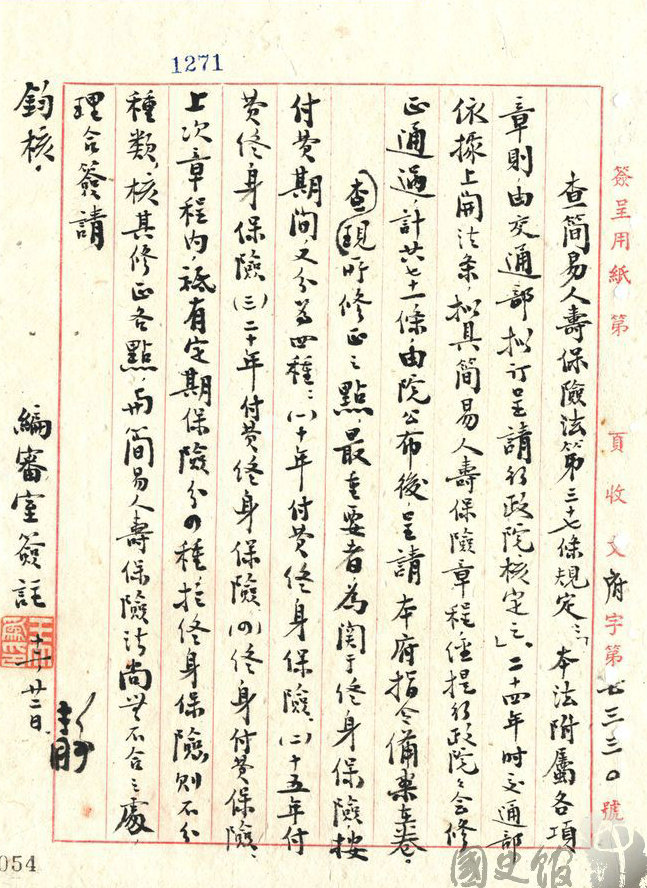 1271
簽呈用紙第 頁收文府字第 七三三〇號
查簡易人壽保險法第三十七條規定：「本法附屬各項
章則由交通部拟訂呈請行政院核定之」、二十四年時交通部
依據上開法条，拟具簡易人壽保險章程經提行政院々会修
正通過，計共七十一條，由院公布後，呈請本府指令備案在卷。
查現所修正之點，最重要者為関于终身保險按
付費期间，又分為四種：(一)十年付費终身保險、(二)十五年付
費终身保險(三)二十年付費终身保險(四)终身付費保險、
上次章程内，祗有定期保險分四種於终身保險，則不分
種類，核其修正各點，与簡易人壽保險法尚無不合之處，
理合簽請
鈞核。
編審室簽註
十一、廿二日
054
國史館